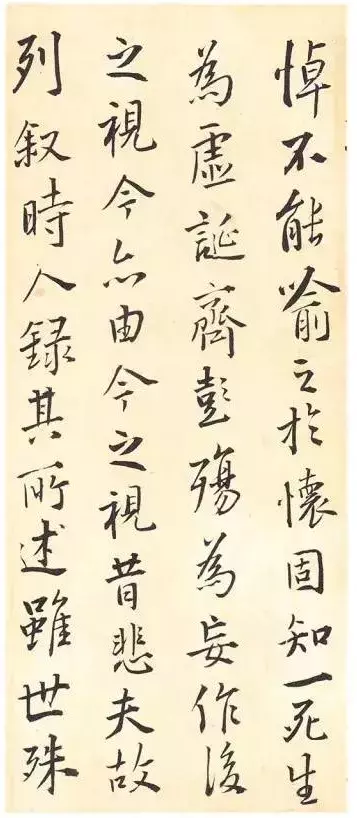 悼不能喻之於懷固知一死生
為虛誕齊彭殤為妄作後
之視今亦由今之視昔悲夫故
列敘時人錄其所述雖世殊